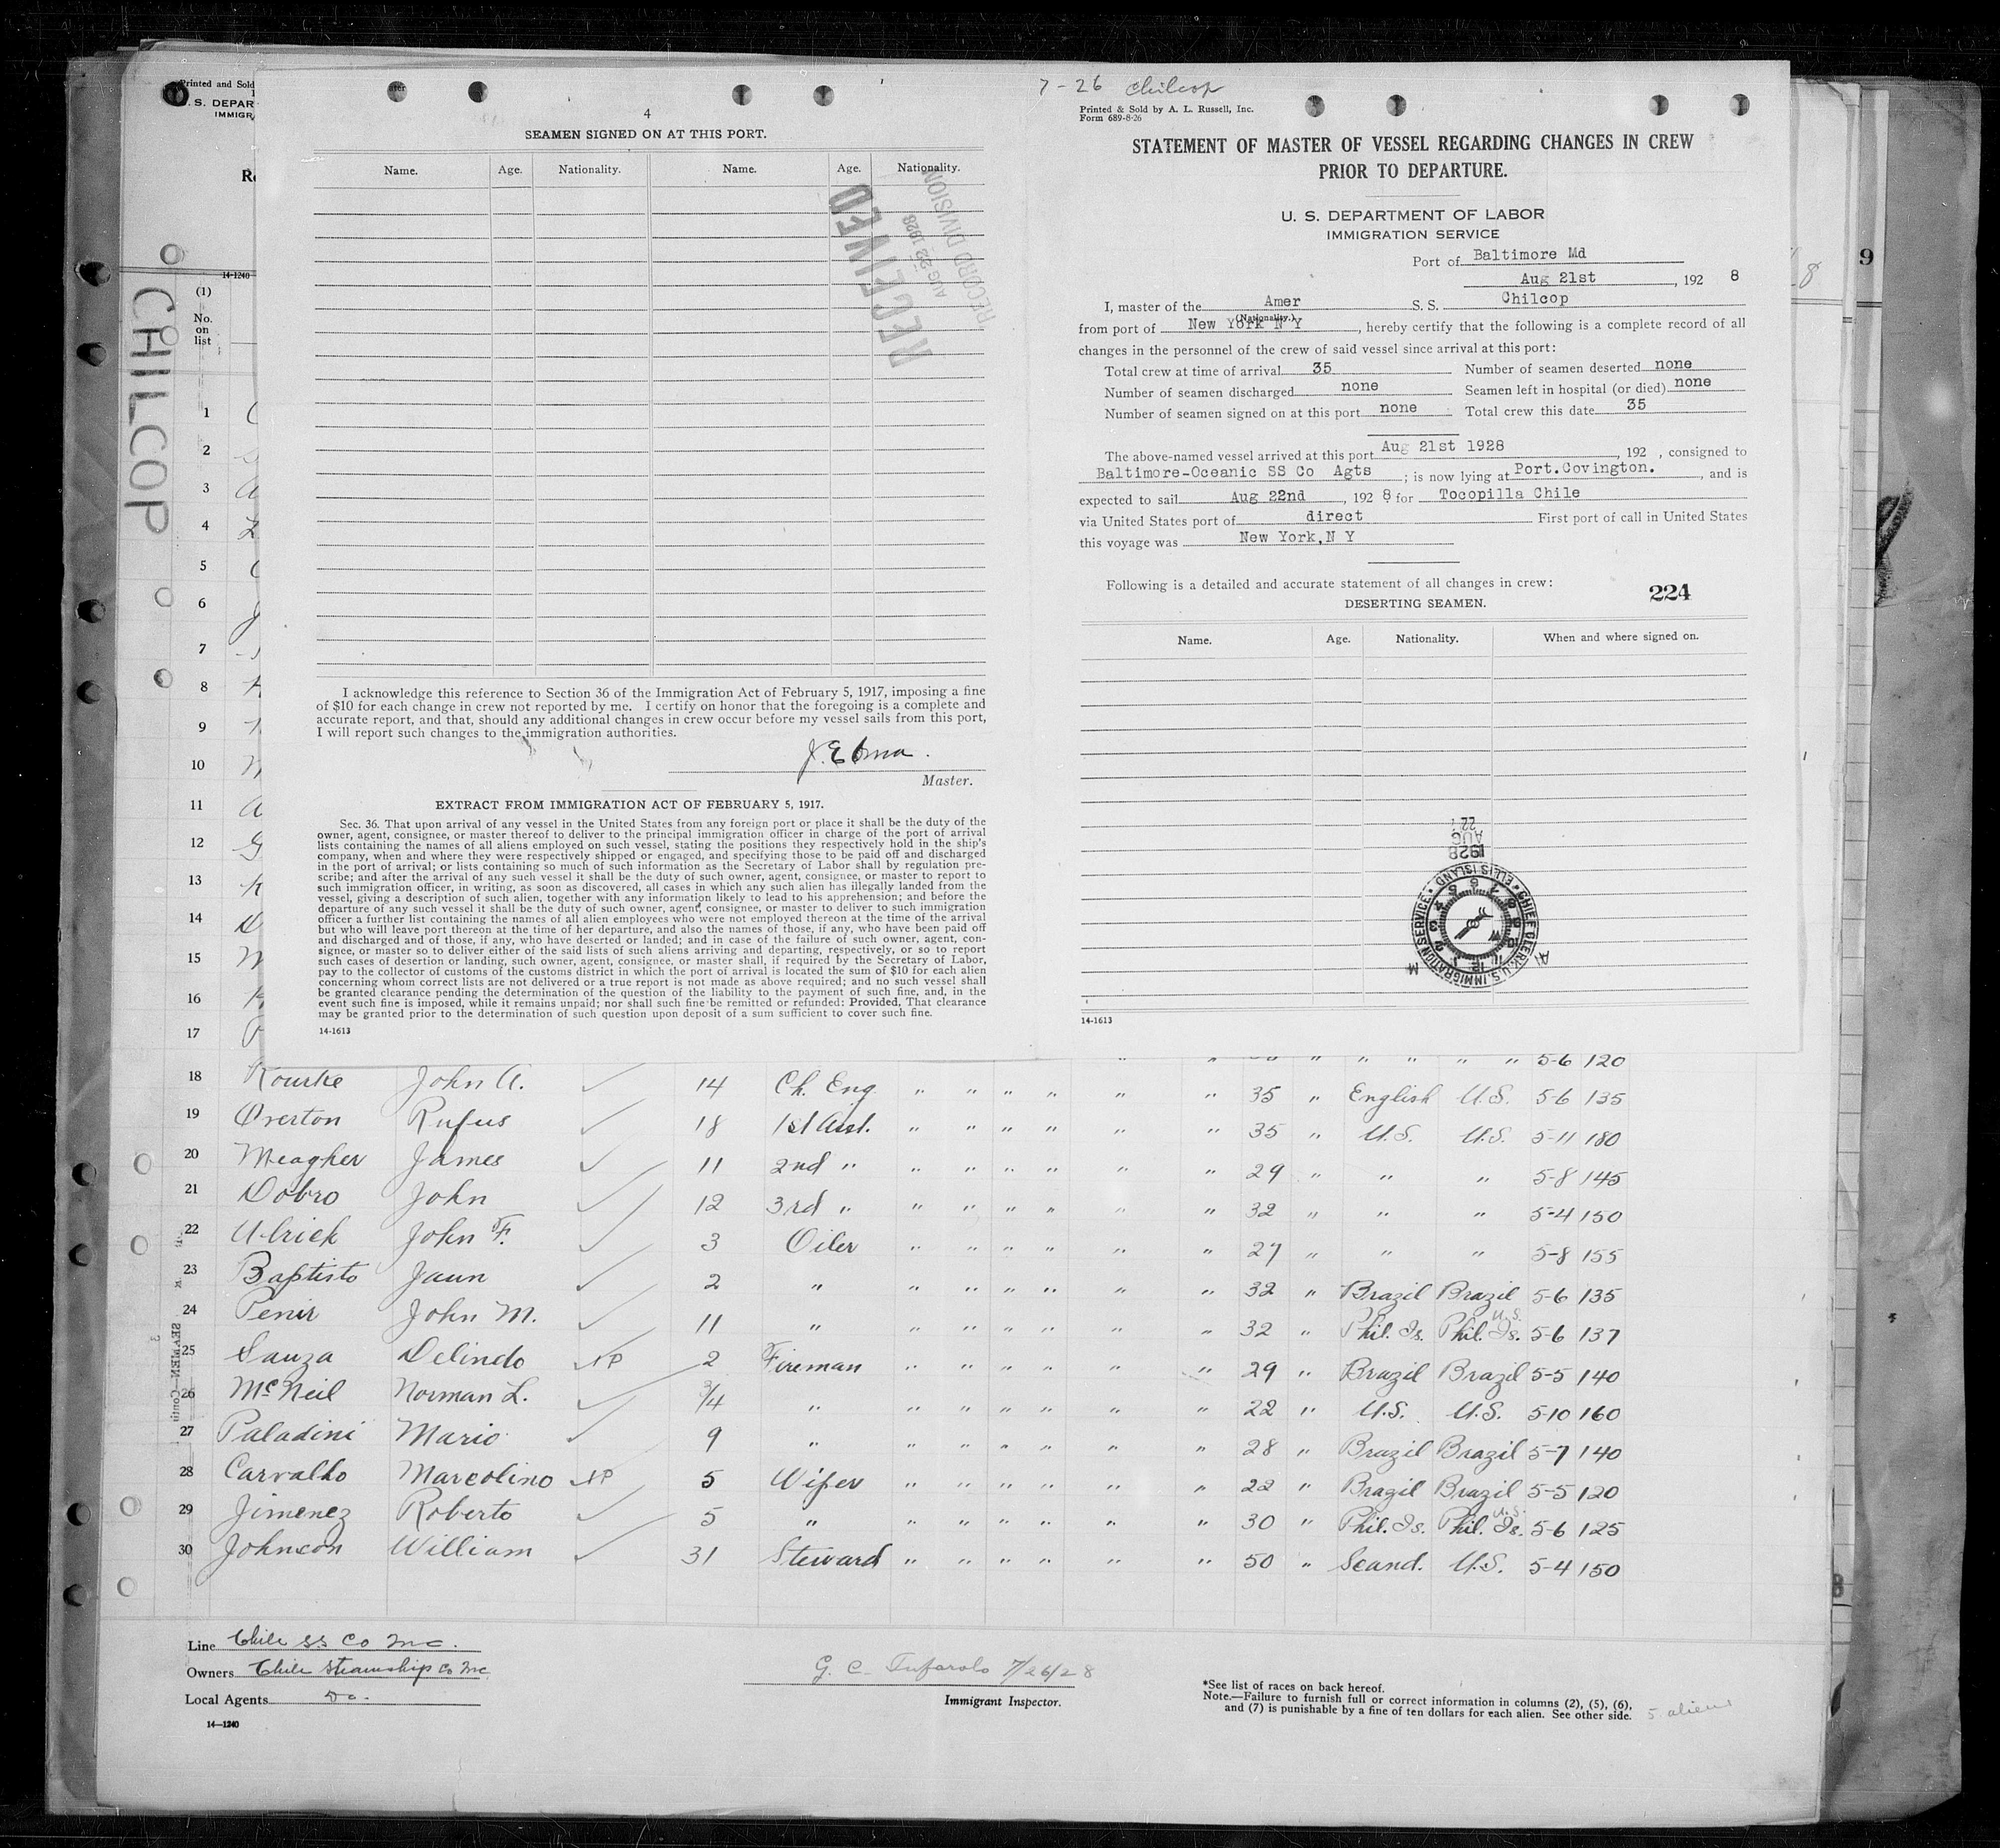 Printed and Sold
U. S. DEPAR
IMMIGR
14-1240
(1)
No.
on
list
CHILCOP
4
SEAMEN SIGNED ON AT THIS PORT.
Name. Age. Nationality. Name. Age. Nationality.
RECEIVED
AUG 22 1928
RECORD DIVISION
I acknowledge this reference to Section 36 of the Immigration Act of February 5, 1917, imposing a fine
of $10 for each change in crew not reported by me. I certify on honor that the foregoing is a complete and
accurate report, and that, should any additional changes in crew occur before my vessel sails from this port,
I will report such changes to the immigration authorities.
Master.
EXTRACT FROM IMMIGRATION ACT OF FEBRUARY 5, 1917.
Sec. 36. That upon arrival of any vessel in the United States from any foreign port or place it shall be the duty of the
owner, agent, consignee, or master thereof to deliver to the principal immigration officer in charge of the port of arrival
lists containing the names of all aliens employed on such vessel, stating the positions they respectively hold in the ship's
company, when and where they were respectively shipped or engaged, and specifying those to be paid off and discharged
in the port of arrival; or lists containing so much of such information as the Secretary of Labor shall by regulation pre-
scribe; and after the arrival of any such vessel it shall be the duty of such owner, agent, consignee, or master to report to
such immigration officer, in writing, as soon as discovered, all cases in which any such alien has illegally landed from the
vessel, giving a description of such alien, together with any information likely to lead to his apprehension; and before the
departure of any such vessel it shall be the duty of such owner, agent, consignee, or master to deliver to such immigration
officer a further list containing the names of all alien employees who were not employed thereon at the time of the arrival
but who will leave port thereon at the time of her departure, and also the names of those, if any, who have been paid off
and discharged and of those, if any, who have deserted or landed; and in case of the failure of such owner, agent, con-
signee, or master so to deliver either of the said lists of such aliens arriving and departing, respectively, or so to report
such cases of desertion or landing, such owner, agent, consignee, or master shall, if required by the Secretary of Labor,
pay to the collector of customs of the customs district in which the port of arrival is located the sum of $10 for each alien
concerning whom correct lists are not delivered or a true report is not made as above required; and no such vessel shall
be granted clearance pending the determination of the question of the liability to the payment of such fine, and, in the
event such fine is imposed, while it remains unpaid; nor shall such fine be remitted or refunded: Provided, That clearance
may be granted prior to the determination of such question upon deposit of a sum sufficient to cover such fine.
14-1613
7-26 Chilcop
Printed & Sold by A. L. Russell, Inc.
Form 689-8-26
STATEMENT OF MASTER OF VESSEL REGARDING CHANGES IN CREW
PRIOR TO DEPARTURE.
U. S. DEPARTMENT OF LABOR
IMMIGRATION SERVICE
Port of Baltimore Md
Aug 21st, 192 8
I, master of the Amer S. S. Chilcop
(Nationality.)
from port of New York N Y, hereby certify that the following is a complete record of all
changes in the personnel of the crew of said vessel since arrival at this port:
Total crew at time of arrival 35 Number of seamen deserted none
Number of seamen discharged none Seamen left in hospital (or died) none
Number of seamen signed on at this port none Total crew this date 35
The above-named vessel arrived at this port Aug 21st 1928, 192 , consigned to
Baltimore-Oceanic SS Co Agts; is now lying at Port.Covington., and is
expected to sail Aug 22nd, 192 8 for Tocopilla Chile
via United States port of direct First port of call in United States
this voyage was New York,N Y
Following is a detailed and accurate statement of all changes in crew:
224
DESERTING SEAMEN.
Name. Age. Nationality. When and where signed on.
22
AUG
1928
CHIEF CLERK, U.S. IMMIGRATION SERVICE • ELLIS ISLAND •
14-1613
1
2
3
4
5
6
7
8
9
10
11
12
13
14
15
16
17 " " " " " " 5-6 120
18 Rourke John A. 14 Ch. Eng. " " " " " " 35 " English U.S. 5-6 135
19 Overton Rufus 18 1st Asst. " " " " " " 35 " U.S. U.S. 5-11 180
20 Meagher James 11 2nd " " " " " " " 29 " " " 5-8 145
21 Dobro John 12 3rd " " " " " " " 32 " " " 5-4 150
22 Ulrich John F. 3 Oiler " " " " " " 27 " " " 5-8 155
23 Baptisto Jaun 2 " " " " " " " 32 " Brazil Brazil 5-6 135
24 Penir John M. 11 " " " " " " " 32 " Phil. Is. Phil. Is. U.S. 5-6 137
25 Sauza Delindo NP 2 Fireman " " " " " " 29 " Brazil Brazil 5-5 140
26 McNeil Norman L. 3/4 " " " " " " " 22 " U.S. U.S. 5-10 160
27 Paladini Mario 9 " " " " " " " 28 " Brazil Brazil 5-7 140
28 Carvalho Marcolino NP 5 Wiper " " " " " " 22 " Brazil Brazil 5-5 120
29 Jimenez Roberto 5 " " " " " " " 30 " Phil. Is. Phil. Is. U.S. 5-6 125
30 Johnson William 31 Steward " " " " " " 50 " Scand. U.S. 5-4 150
Line Chile SS Co Inc.
Owners Chile Steamship Co Inc
Local Agents Do.
14—1240
G. C. Tufarolo 7/26/28
Immigrant Inspector.
*See list of races on back hereof.
Note.—Failure to furnish full or correct information in columns (2), (5), (6),
and (7) is punishable by a fine of ten dollars for each alien. See other side.
5 aliens